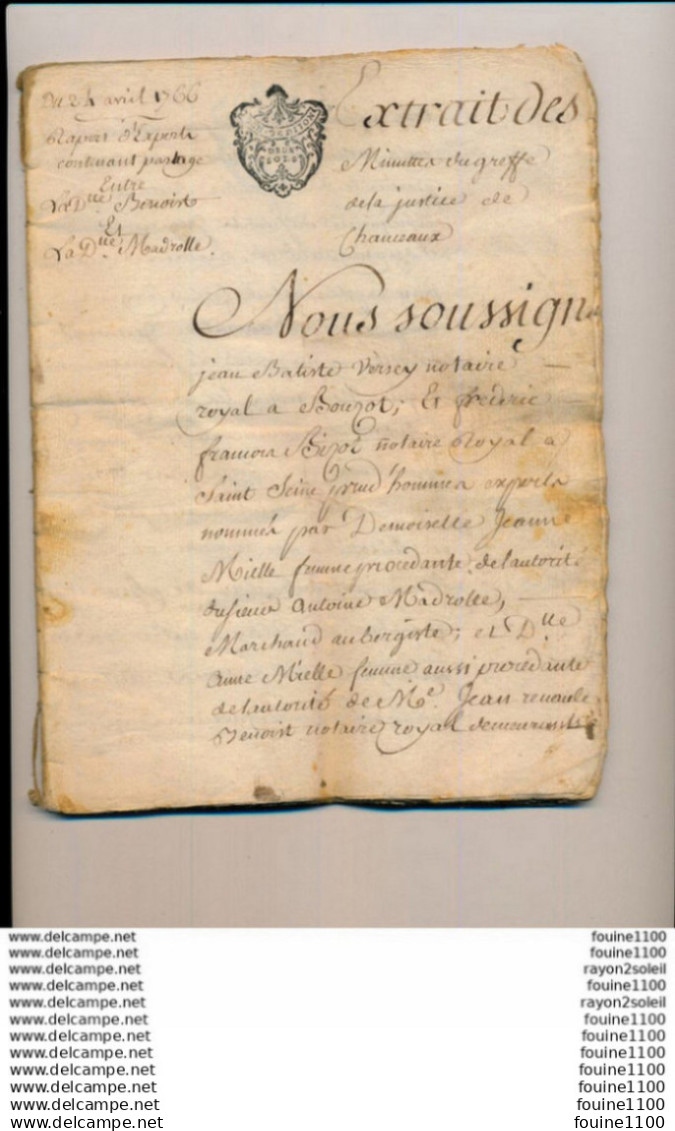 Du 24 avril 1766
Raport d'Experts
contenant partage
Entre
La Dlle Benoist
Et
La Dlle Madrolle.
Extrait des
Minuttes du greffe
de la justice de
Chanceaux
Nous soussigne
jean Batiste Versey notaire
royal a Bouzot; Et frederic
francois notaire Royal a
Saint Seine prud'hommes experts
nommés par Demoiselle Jeanne
Mielle femme procedante de l'autorité
du sieur Antoine Madrolle,
Marchand aubergiste; et Dlle
anne Mielle femme aussi procedante
de l'autorité de Me. Jean renaule
Benoist notaire royal demeurants
www.delcampe.net fouine1100
www.delcampe.net fouine1100
www.delcampe.net rayon2soleil
www.delcampe.net fouine1100
www.delcampe.net rayon2soleil
www.delcampe.net fouine1100
www.delcampe.net fouine1100
www.delcampe.net fouine1100
www.delcampe.net fouine1100
www.delcampe.net fouine1100
www.delcampe.net fouine1100
www.delcampe.net fouine1100